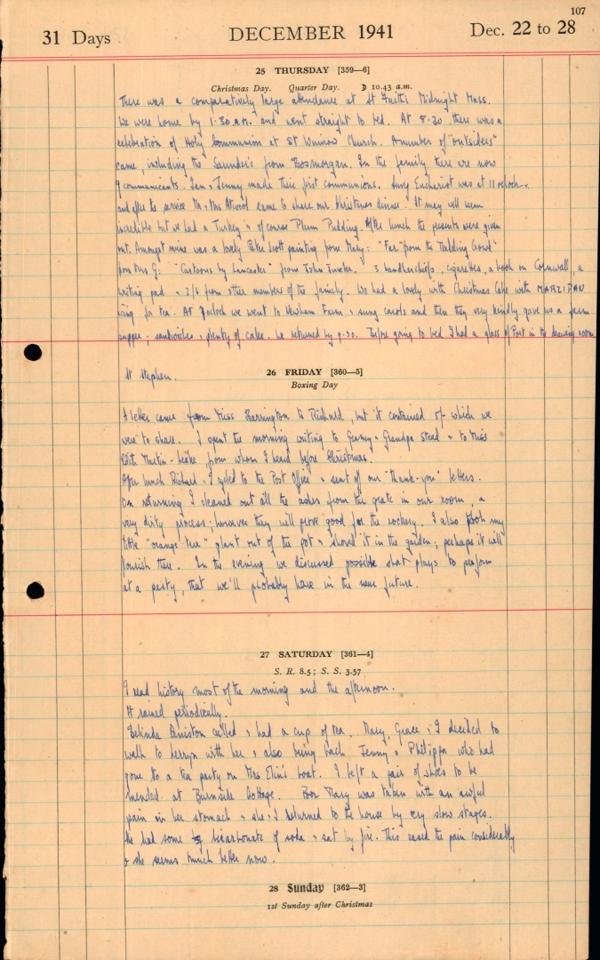 107
31 Days DECEMBER 1941 Dec. 22 to 28
25 THURSDAY [359—6]
Christmas Day. Quarter Day. ☽ 10.43 a.m.
There was a comparatively large attendance at St Faith's Midnight Mass.
We were home by 1.30 a.m. and went straight to bed. At 8.30 there was a
celebration of Holy Communion at St Winnow Church. A number of "outsiders"
came, including the from In the family there we now
9 communicants. + Jenny made their first communions. Sung Eucharist was at 11 o'clock
and after the service Mr + Mrs Atwood came to share our Christmas dinner. It may well seem
incredible but we had a Turkey + of course Plum Pudding. After lunch the presents were given
out. Amongst mine was a lovely Peter Scott painting from Mary: "Far from the Madding Crowd"
from Mrs G: "Cartoons by Lancaster" from John 3 handkerchiefs, cigarettes, a book on Cornwall, a
writing pad + from other members of the family. We had a lovely with Christmas Cake with MARZIPAN
icing for tea. At 7 o'clock we went to Farm + sung carols and then they very kindly gave us a farm
supper; sandwiches + plenty of cake. We returned by 9.30. Before going to bed I had a glass of Port in the drawing room
St Stephen. 26 FRIDAY [360—5]
Boxing Day
A letter came from Miss Barrington to Richard, but it contained of which we
were to share. I spent the morning writing to Granny + Grandpa + to Miss
Edith Martin- from whom I heard before Christmas.
After lunch Richard + I cycled to the Post Office + sent off our "thank-you" letters.
On returning I cleaned out all the ashes from the grate in our room, a
very dirty process; however they will prove good for the rockery. I also took my
little "orange tree" plant out of the pot + shoved it in the garden; perhaps it will
flourish there. In the evening we discussed possible short plays to perform
at a party, that we'll probably have in the near future.
27 SATURDAY [361—4]
S. R. 8.5; S. S. 3.57
I read history most of the morning and the afternoon.
It rained periodically.
Belinda called + had a cup of tea. Mary, Grace + I decided to
walk to with her + also bring back Jenny + Philippa who had
gone to a tea party on Mrs boat. I left a pair of shoes to be
mended at Burnside Cottage. Poor Mary was taken with an awful
pain in her stomach + she + I returned to the house by very slow stages.
She had some bicarbonate of soda + sat by fire. This eased the pain considerably
+ she seems much better now.
28 Sunday [362—3]
1st Sunday after Christmas